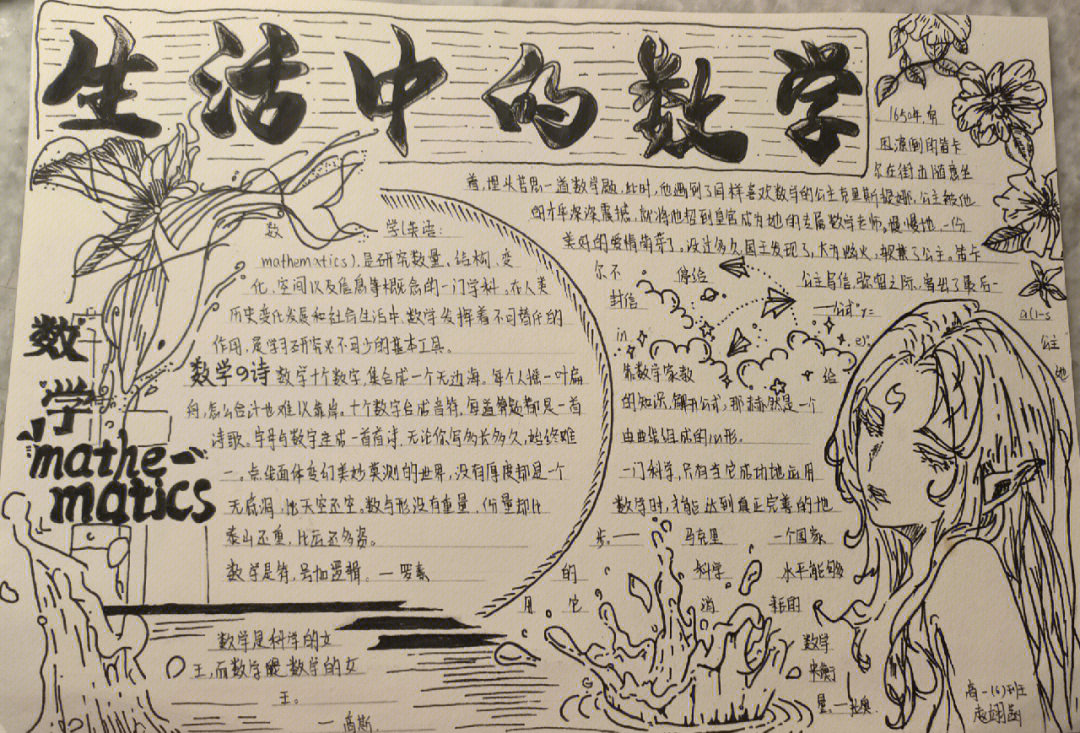 生活中的数学
1650年,穷
困潦倒的笛卡
尔在街边随意坐
着,埋头苦思一道数学题,此时,他遇到了同样喜欢数学的公主克里斯提娜,公主被他
的才华深深震撼,就将他招到皇宫成为她的专属数学老师。慢慢地,一份
美好的爱情萌芽了。没过多久,国王发现了,大为恼火,软禁了公主。笛卡
尔不 停给 公主写信,弥留之际,寄出了最后一
封信 "公式"r=
a(1-s
in e). 公主
靠数学家教 给 她
的知识,解开公式,那赫然是一个
由曲线组成的心形。
数 学(英语:
mathematics),是研究数量、结构、变
化、空间以及信息等概念的一门学科。在人类
历史变化发展和社会生活中,数学发挥着不可替代的
作用,是学习研究必不可少的基本工具。
数学の诗 数学十个数字,集合成一个无边海。每个人摇一叶扁
舟,怎么合计也难以靠岸。十个数字合成音符,每道算题都是一首
诗歌。字母与数字连成一首首诗,无论你写多长多久,始终难
一。点线面体变幻美妙莫测的世界,没有厚度却是一个
无底洞,比天空还空。数与形没有重量,份量却比
泰山还重,比云还多姿。
数学是符号加逻辑。—罗素
数学
mathe-
matics
数学是科学的女
王,而数学是数学的女
王。
—高斯.
一门科学,只有当它成功地运用
数学时,才能达到真正完善的地
步。—— 马克思
一个国家
的 科学 水平能够
用它 消 耗的
数学
来衡
量。—拉奥
高一(6)班